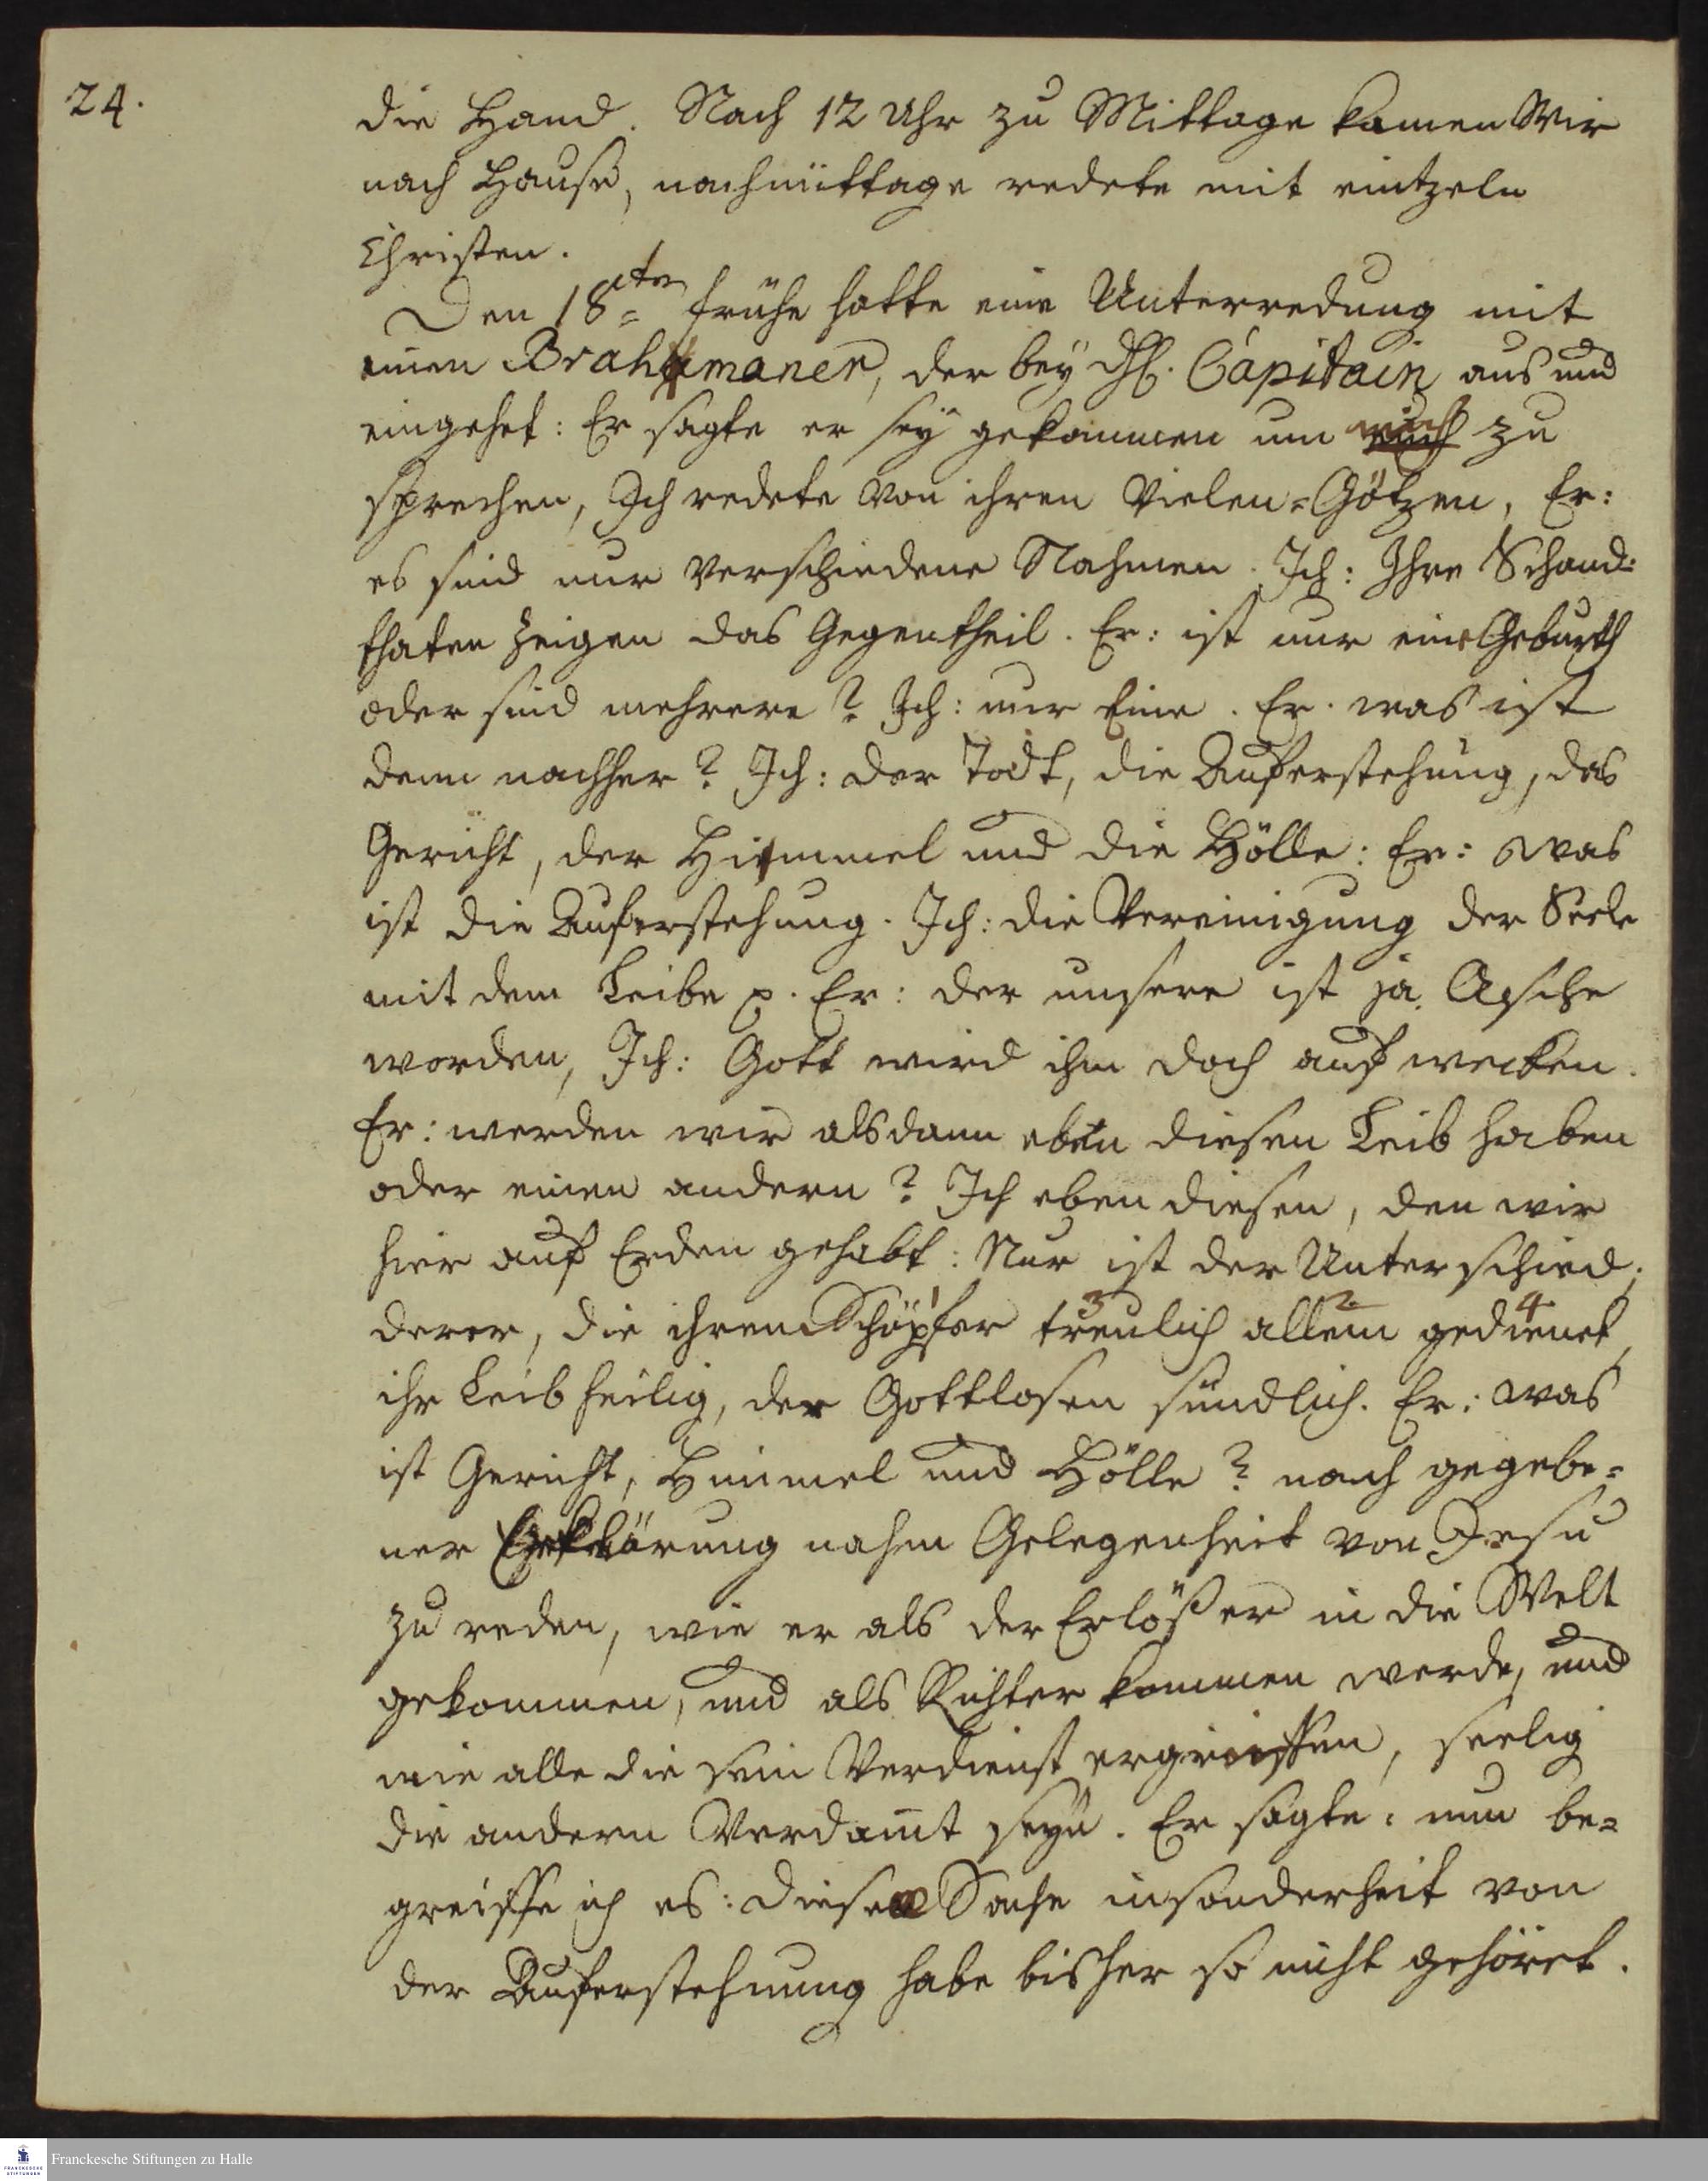 24.
die Hand. Nach 12 Uhr zu Mittage kamen Wir
nach Hause, nachmittage redete mit eintzeln
Christen.
Den 18ten frühe hatte eine Unterredung mit
einen Brahmaner, der bey Capitain aus und
eingehet: Er sagte er sey gekommen um mich zu
sprechen, Ich redete von ihren Vielen=Götzen, Er:
es sind nur verschiedene Nahmen. Ich: Ihre Schand=
thaten zeigen das Gegentheil. Er: ist nur eine Geburth
oder sind mehrere? Ich: nur Eine. Er. was ist
denn nachher? Ich: der Todt, die Auferstehung, das
Gericht, der Himmel und die Hölle: Er: was
ist die Auferstehung. Ich: die Vereinigung der Seele
mit dem Leibe p. Er: der unsere ist ja Asche
worden, Ich: Gott wird ihn doch auf wecken.
Er: werden wir alsdann eben diesen Leib haben
oder einen andern? Ich eben diesen, den wir
hier auf Erden gehabt: Nur ist der Unterschied;
derer, die ihren Schöpfer 1 treulich 3 allein 2 gedienet 4,
ihr Leib heilig, der Gottlosen sündlich. Er: was
ist Gericht, Himmel und Hölle? nach gegebe=
ner Erklärung nahm Gelegenheit von Jesu
zu reden, wie er als der Erlößer in die Welt
gekommen, und als Richter kommen werde, und
wie alle die sein Verdienst ergreiffen, seelig
die andern Verdam̄t seyn. Er sagte: nun be=
greiffe ich es: diese Sache insonderheit von
der Auferstehung habe bisher so nicht gehöret.
Franckesche Stiftungen zu Halle